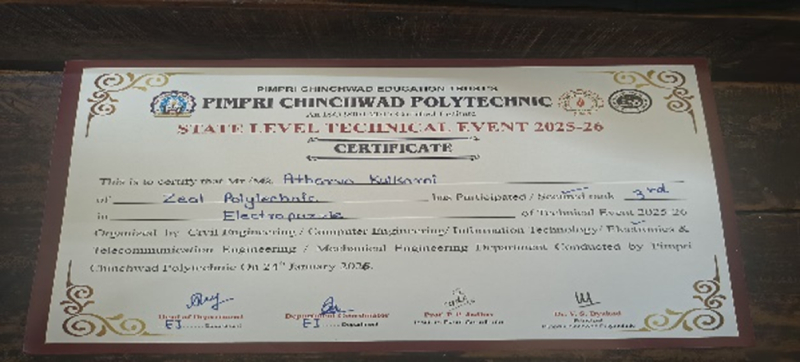 PIMPRI CHINCHWAD EDUCATION TRUST'S
PIMPRI CHINCHWAD POLYTECHNIC
STATE LEVEL TECHNICAL EVENT 2025-26
CERTIFICATE
This is to certify that Mr /Ms. Atharva Kulkarni
of Zeal Polytechnic has Participated / Secured rank 3rd
in Electropuzzle of Technical Event 2025-26
Organized by Civil Engineering/ Computer Engineering/ Information Technology/ Electronics &
Telecommunication Engineering / Mechanical Engineering Department Conducted by Pimpri
Chinchwad Polytechnic On 24th January 2026.
Head of Department Department Coordinator
EJ Department EJ Department Principal